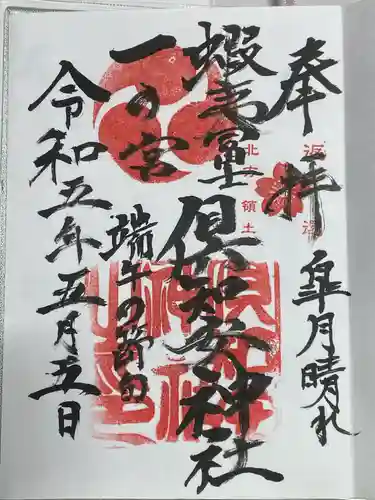 奉拝
皐月晴れ
北方領土
蝦夷富士
倶知安神社
一の宮
端午の節句
令和五年五月五日